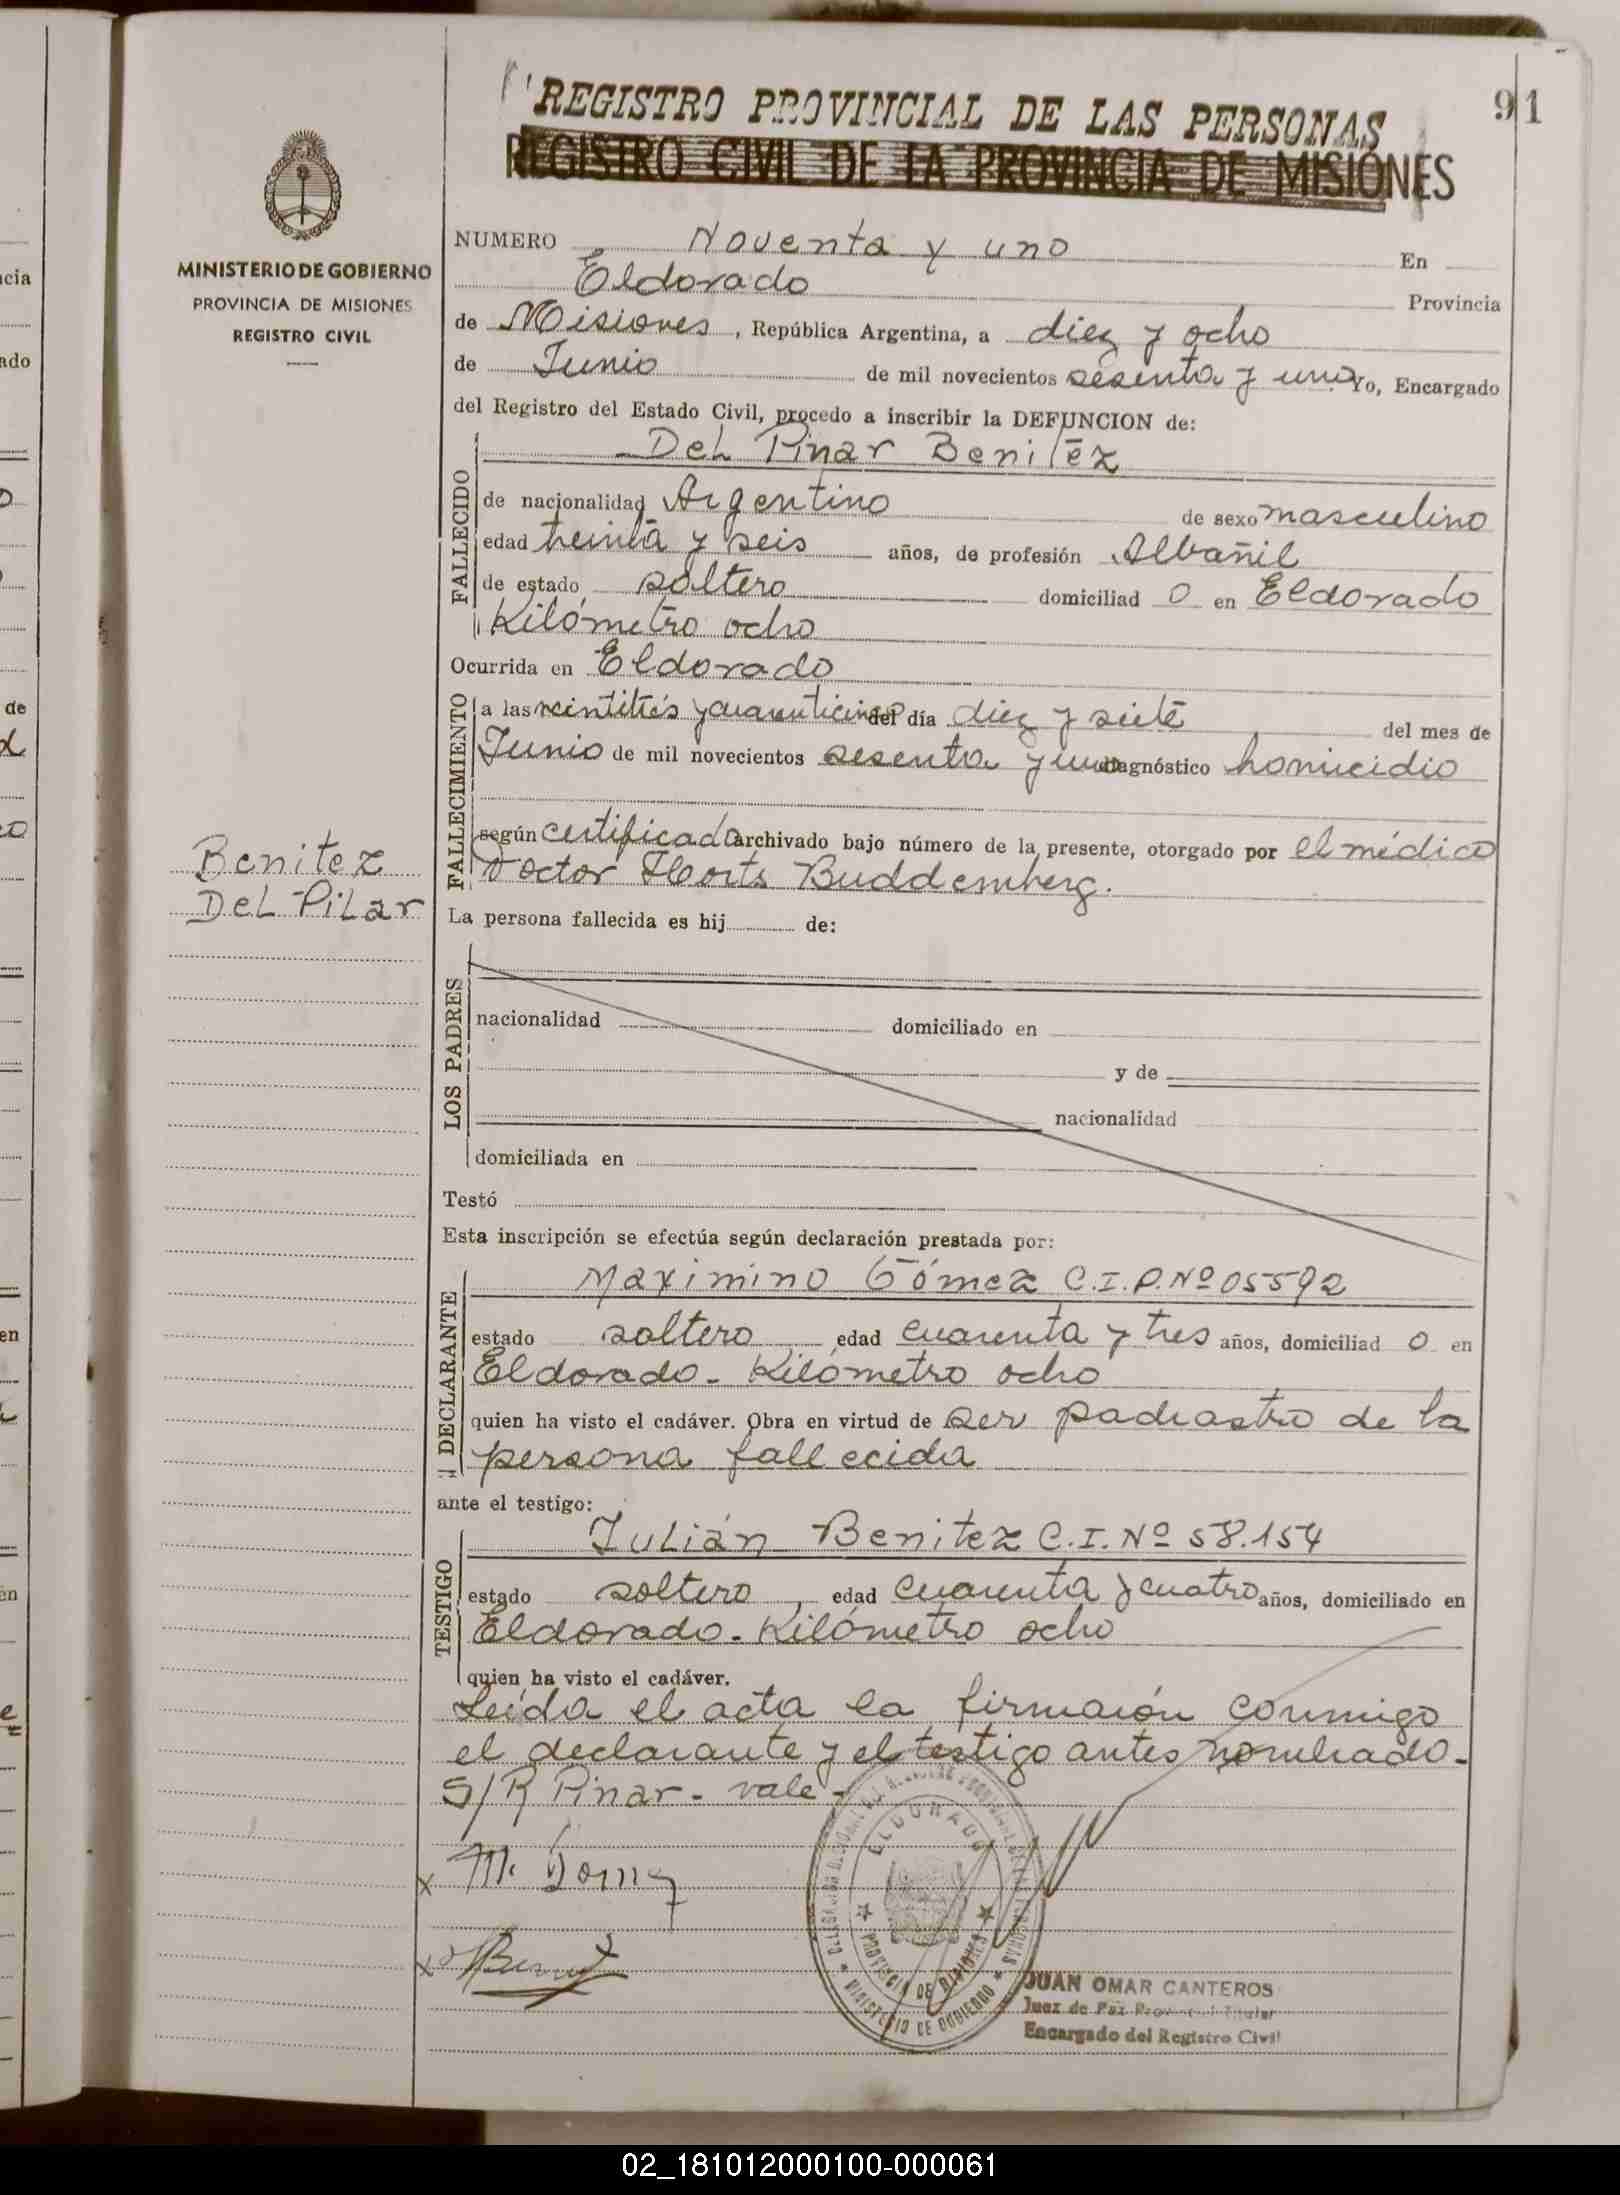 REGISTRO PROVINCIAL DE LAS PERSONAS
91
REGISTRO CIVIL DE LA PROVINCIA DE MISIONES
MINISTERIO DE GOBIERNO
PROVINCIA DE MISIONES
REGISTRO CIVIL
NUMERO Noventa y uno En
Eldorado Provincia
de Misiones, República Argentina, a diez y ocho
de Junio de mil novecientos sesenta y uno Yo, Encargado
del Registro del Estado Civil, procedo a inscribir la DEFUNCION de:
FALLECIDO
Del Pinar Benitez
de nacionalidad Argentino de sexo masculino
edad treinta y seis años, de profesión Albañil
de estado soltero domiciliad o en Eldorado
Kilómetro ocho
Ocurrida en Eldorado
FALLECIMIENTO
a las veintitrés y cuarenticinco del día diez y siete del mes de
Junio de mil novecientos sesenta y uno diagnóstico homicidio
según certificado archivado bajo número de la presente, otorgado por el médico
Doctor Horts Buddemberg.
Benitez
Del Pilar
La persona fallecida es hij de:
LOS PADRES
nacionalidad domiciliado en
y de
nacionalidad
domiciliada en
Testó
Esta inscripción se efectúa según declaración prestada por:
DECLARANTE
Maximino Gómez C.I.P. Nº 05592
estado soltero edad cuarenta y tres años, domiciliad o en
Eldorado - Kilómetro ocho
quien ha visto el cadáver. Obra en virtud de ser padrastro de la
persona fallecida
ante el testigo:
TESTIGO
Julián Benitez C.I. Nº 58.154
estado soltero, edad cuarenta y cuatro años, domiciliado en
Eldorado - Kilómetro ocho
quien ha visto el cadáver.
Leída el acta la firmarón conmigo
el declarante y el testigo antes nombrado-
S/R Pinar - vale -
x M. Gomez
x
ELDORADO
PROVINCIA DE MISIONES
MINISTERIO DE GOBIERNO
JUAN OMAR CANTEROS
Juez de Paz Provincial Titular
Encargado del Registro Civil
02_181012000100-000061